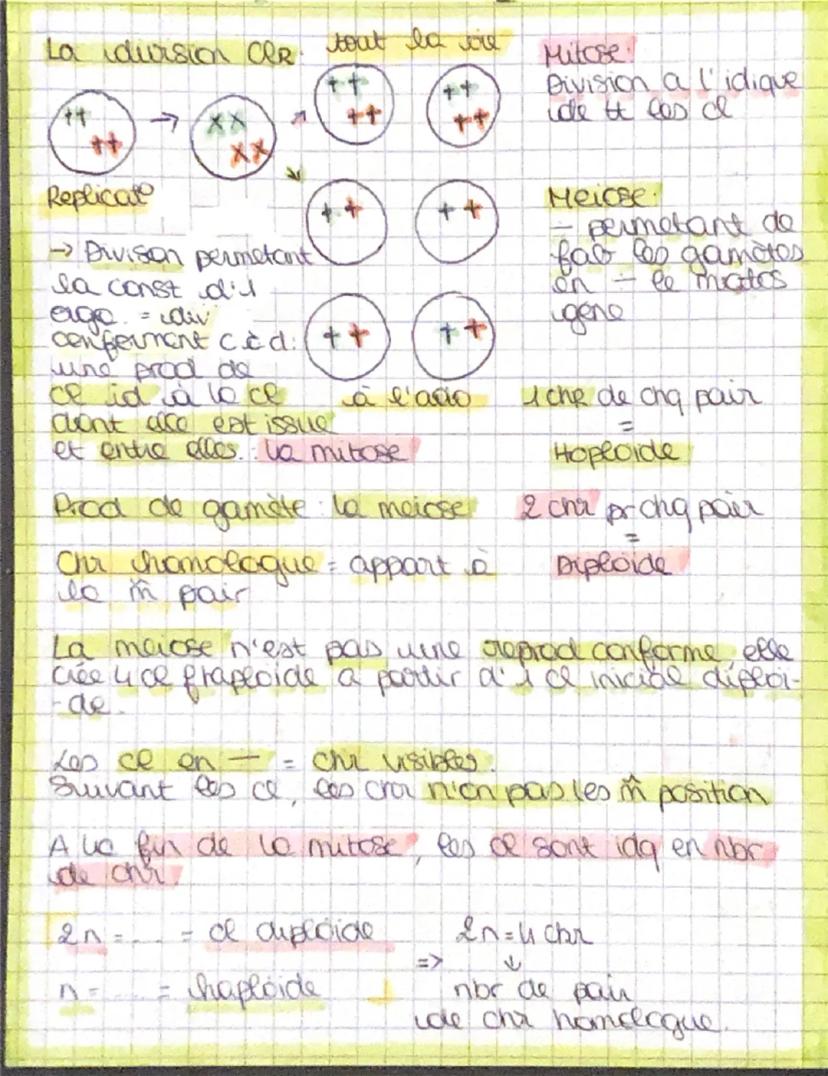 La division Clr. tout la vie
Mitose:
Division a l'idique
de tt les cl
Replicat°
Meiose:
– permetant de
fab les gamètes
en – le mates
gène
→ Divison permetant
la const d'1
orga. = div
confermant c.à.d:
une prod de
cl id à la cl
dont elle est issue
et entre elles. La mitose
à l'ado
1 chr de chq pair
=
Haploide
Prod de gamète: la meiose
2 chr pr chq pair
=
Diploide
Chr homologue = appart à
la m̂ pair
La meiose n'est pas une reprod conforme, elle
crée 4 cl haploide a partir d'1 cl inicial diploi-
-de.
Les cl en — = chr visibles.
Suivant les cl, les chr n'on pas les m̂ position
A la fin de la mitose, les cl sont idq en nbr
de chr.
2n = .... = cl diploide
n = .... = haploide
=>
2n = 4 chr
↓
nbr de pair
de chr homologue.